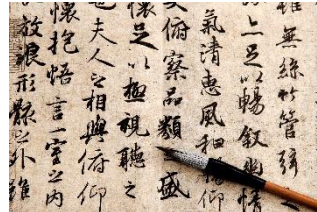 雖無絲竹管弦
足以暢叙幽情
氣清惠風和暢仰
大俯察品類盛
懷足以極視聽之
也夫人之相與俯仰
懷抱悟言一室之内
放浪形骸之外雖